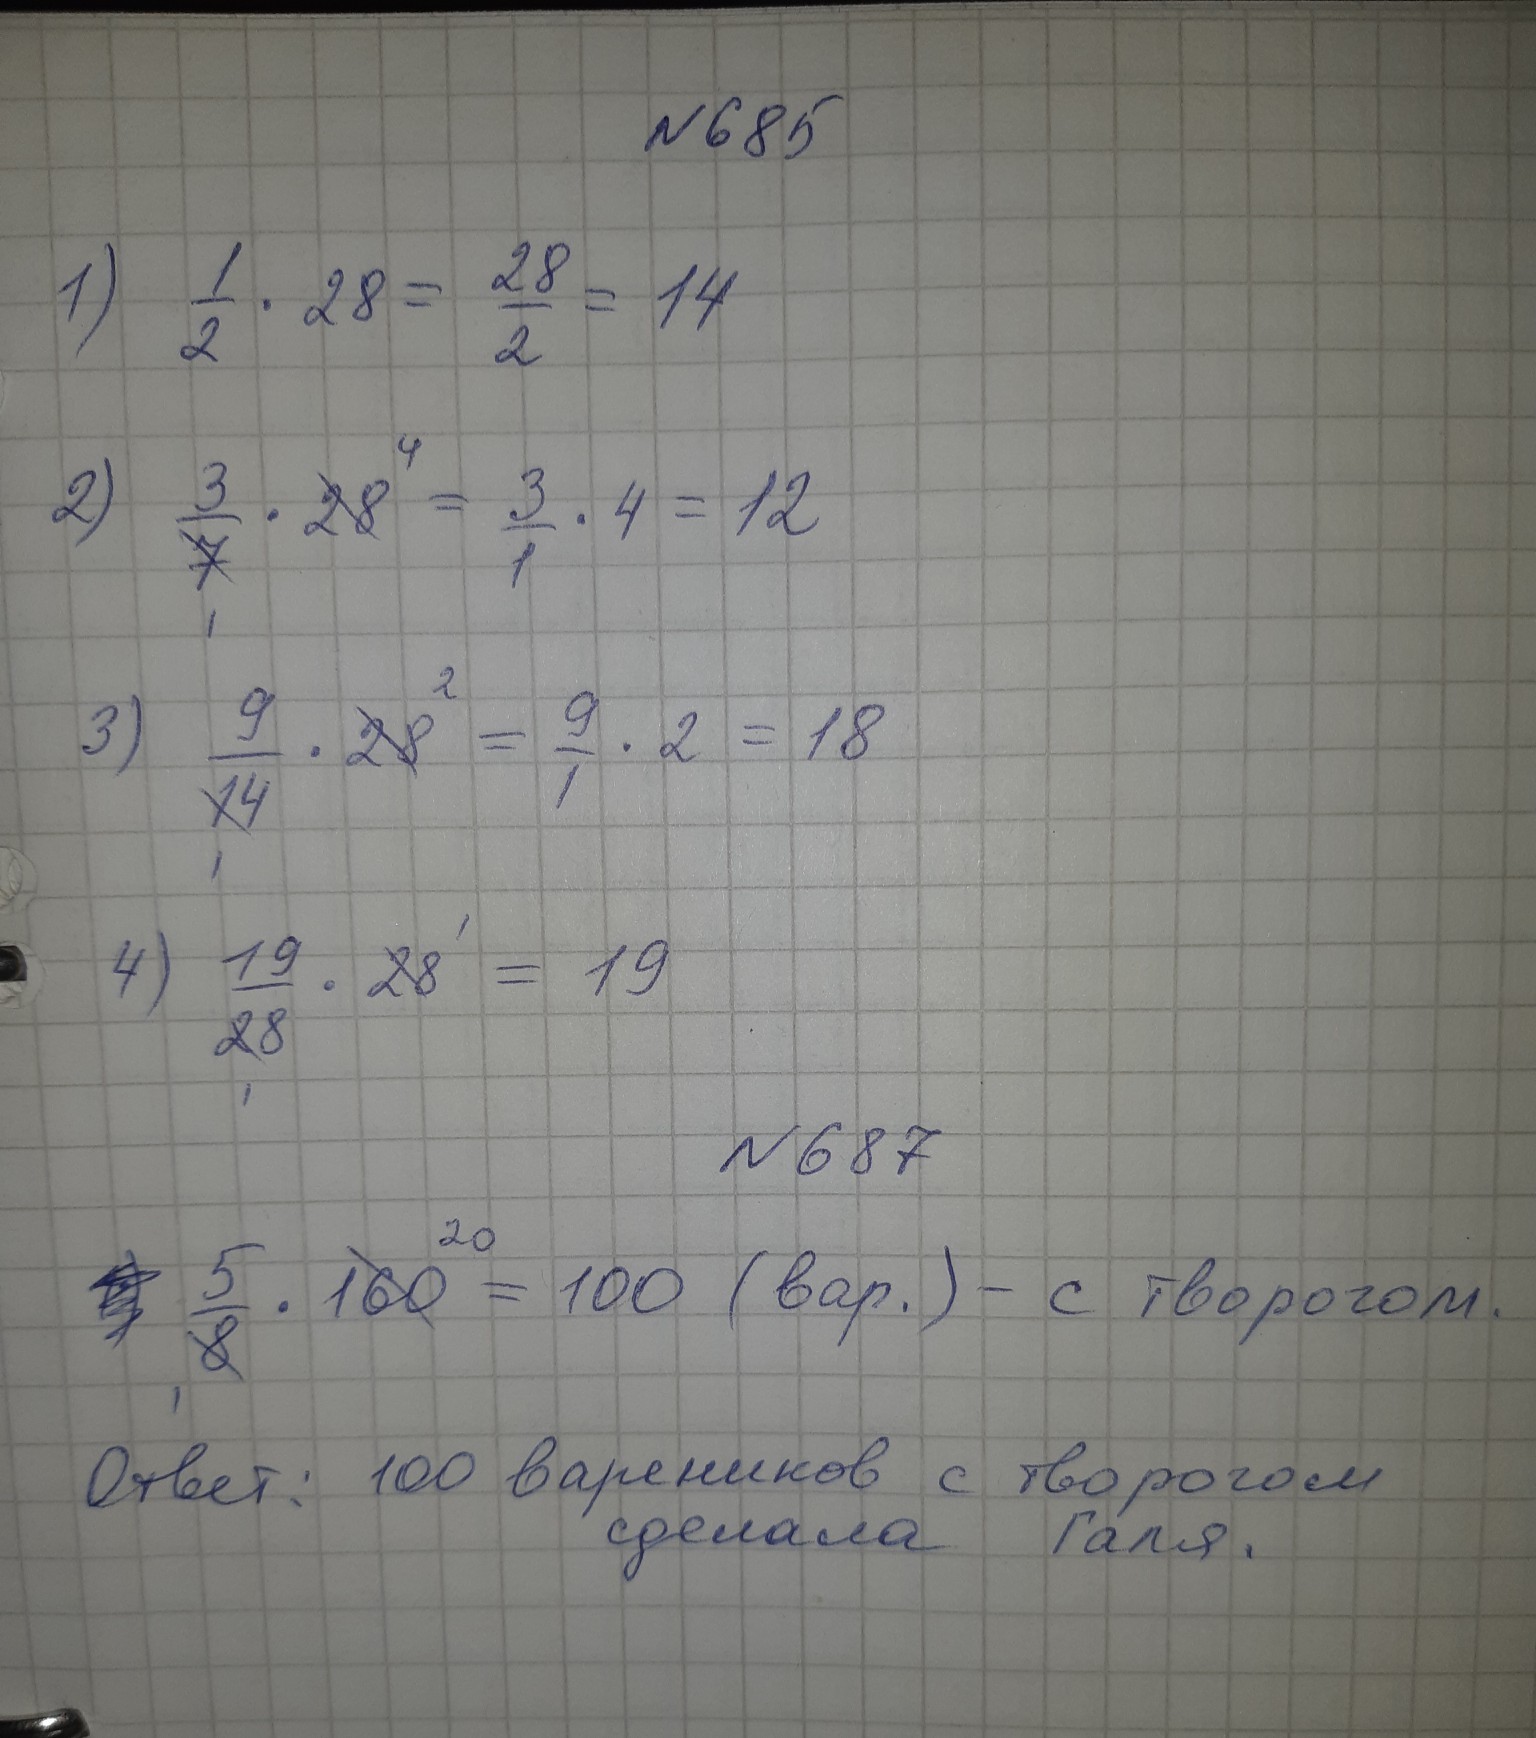 №685
1) 1/2 · 28 = 28/2 = 14
2) 3/7 1 · 28 4 = 3/1 · 4 = 12
3) 9/14 1 · 28 2 = 9/1 · 2 = 18
4) 19/28 1 · 28 1 = 19
№687
5/8 1 · 160 20 = 100 (вар.) - с творогом.
Ответ: 100 вареников с творогом
сделала Галя.